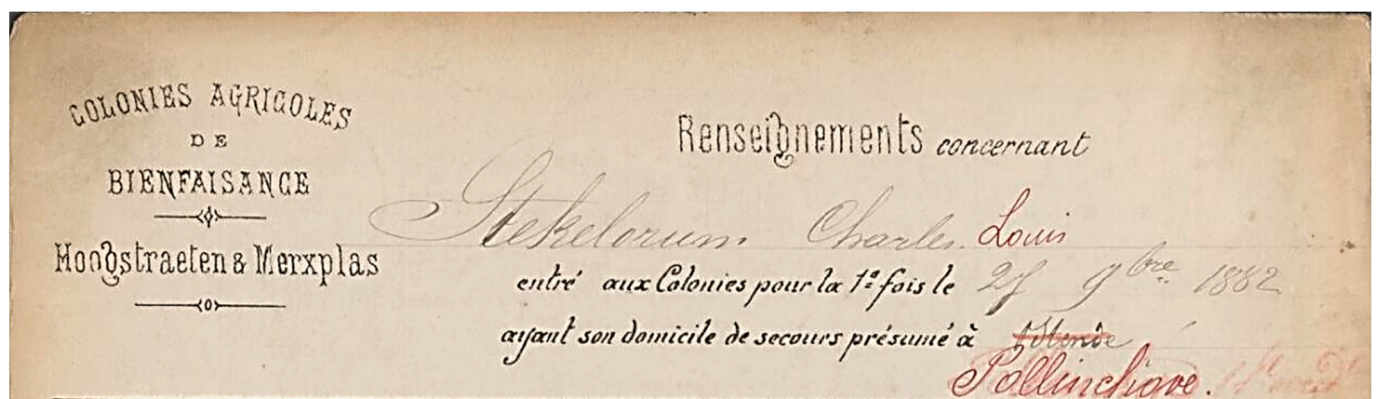 COLONIES AGRICOLES
DE
BIENFAISANCE
Hoogstraeten & Merxplas
Renseignements concernant
Stekelorum Charles Louis
entré aux Colonies pour la 1e fois le 25 9bre 1882
ayant son domicile de secours présumé à Ostende
Pollinchove.